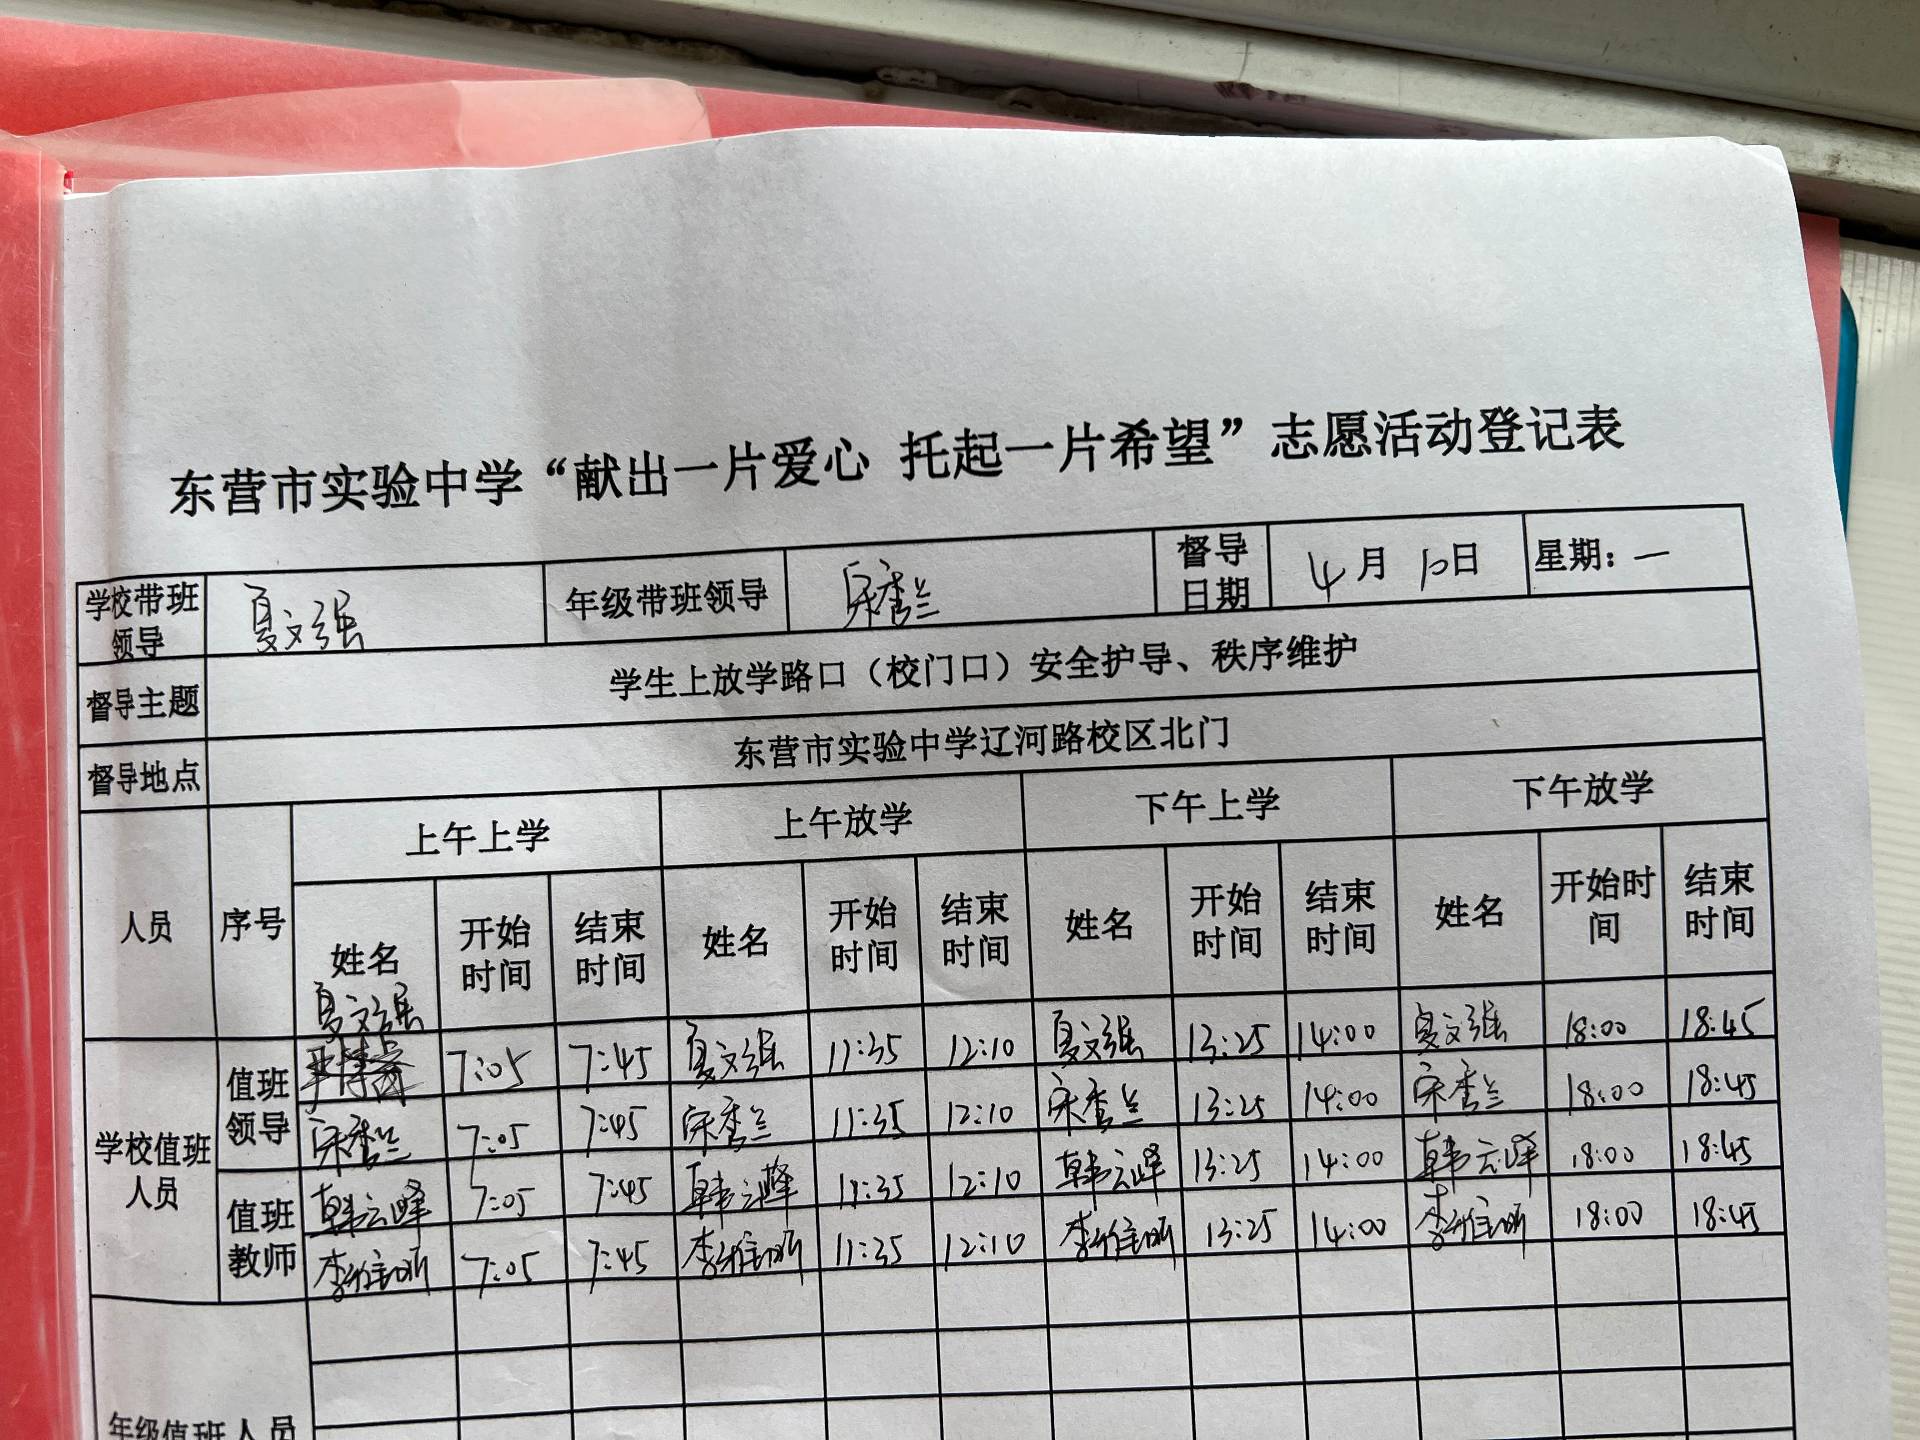 东营市实验中学“献出一片爱心 托起一片希望”志愿活动登记表
学校带班领导 夏文强 年级带班领导 宋秀兰 督导日期 4月10日 星期：一
督导主题 学生上放学路口（校门口）安全护导、秩序维护
督导地点 东营市实验中学辽河路校区北门
人员 序号 上午上学 上午放学 下午上学 下午放学
姓名 开始时间 结束时间 姓名 开始时间 结束时间 姓名 开始时间 结束时间 姓名 开始时间 结束时间
学校值班人员
值班领导
夏文强 7:05 7:45 夏文强 11:35 12:10 夏文强 13:25 14:00 夏文强 18:00 18:45
宋秀兰 7:05 7:45 宋秀兰 11:35 12:10 宋秀兰 13:25 14:00 宋秀兰 18:00 18:45
值班教师
韩云峰 7:05 7:45 韩云峰 11:35 12:10 韩云峰 13:25 14:00 韩云峰 18:00 18:45
7:05 7:45 11:35 12:10 13:25 14:00 18:00 18:45
年级值班人员